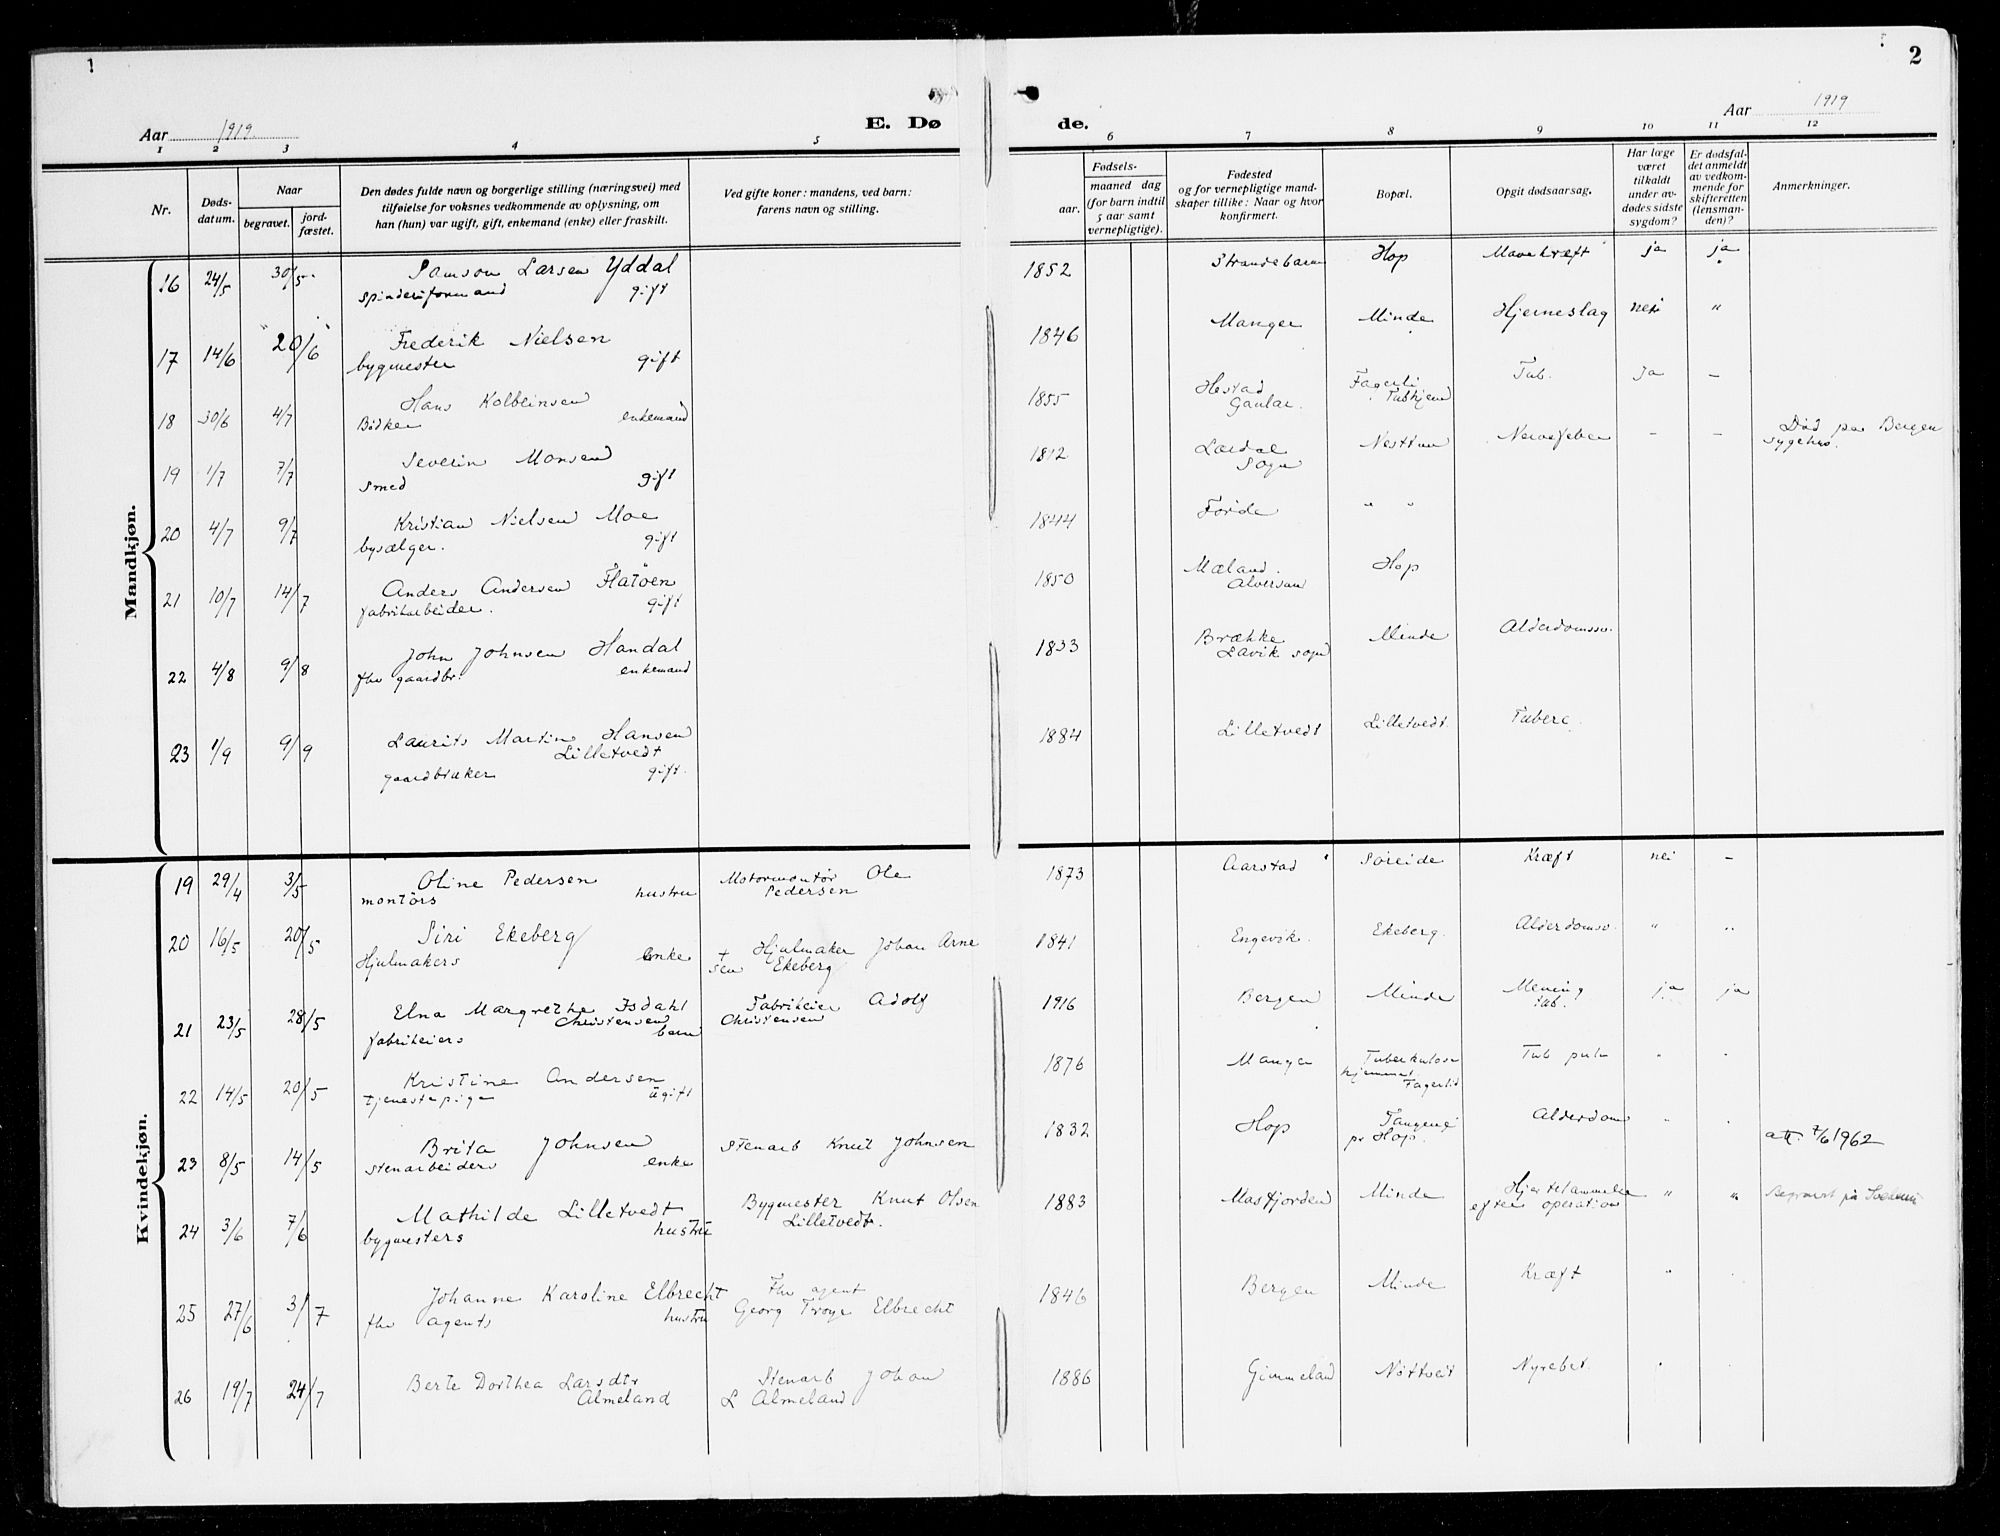 1
2
Aar 1919.
E. Dø
de.
Aar 1919
1 2 3 4 5
6 7 8 9 10 11 12
Nr.
Døds-
datum.
Naar
begravet.
jord-
fæstet.
Den dødes fulde navn og borgerlige stilling (næringsvei) med
tilføielse for voksnes vedkommende av oplysning, om
han (hun) var ugift, gift, enkemand (enke) eller fraskilt.
Ved gifte koner: mandens, ved barn:
farens navn og stilling.
Fødsels-
aar.
maaned dag
(for barn indtil
5 aar samt
vernepligtige).
Fødested
og for vernepligtige mand-
skaper tillike: Naar og hvor
konfirmert.
Bopæl.
Opgit dødsaarsag.
Har læge
været
tilkaldt
under av-
dødes sidste
sygdom?
Er dødsfal-
det anmeldt
av vedkom-
mende for
skifteretten
(lensman-
den)?
Anmerkninger.
Mandkjøn.
16 24/5 30/5 Samson Larsen Yddal 1852 Strandebarm Hop Mavekræft ja ja
spinderiformand gift
17 14/6 20/6 Frederik Nielsen 1846 Manger Minde Hjerneslag nei "
bygmester gift
18 30/6 4/7 Hans Kolbeinsen 1855 Hestad Fagerli Tub. Ja –
Bødker enkemand Gaular. Tubhjem
19 1/7 7/7 Severin Monsen 1812 Lærdal Nesttun Nervefeber – – Død paa Bergen
smed gift Sogn sygehus.
20 4/7 9/7 Kristian Nielsen Moe 1844 Førde " "
bysælger. gift
21 10/7 14/7 Anders Andersen Flatøen 1850 Mæland. Hop
fabrikarbeider. gift Alversun
22 4/8 9/8 John Johnsen Handal 1833 Brække Minde Alderdomssv.
fhv gaardbr. enkemand Lavik sogn
23 1/9 9/9 Laurits Martin Hansen 1884 Lilletvedt Lilletvedt Tuberc.
Lilletvedt
gaardbruker gift.
Kvindekjøn.
19 29/4 3/5 Oline Pedersen Motormontør Ole 1873 Aarstad Søreide Kræft nei –
montørs hustru Pedersen
20 16/5 20/5 Siri Ekeberg + Hjulmaker Johan Arne 1841 Engevik. Ekeberg. Alderdomsv. " "
Hjulmakers enke sen Ekeberg
21 23/5 28/5 Elna Margrethe Isdahl Fabrikeier Adolf 1916 Bergen Minde Mening ja ja
Christensen Christensen tub.
fabrikeiers barn
22 14/5 20/5 Kristine Andersen 1876 Manger Tuberkulose Tub pulm " "
tjenestepige ugift hjemmet Fagerlid
23 8/5 14/5 Brita Johnsen Stenarb Knut Johnsen 1832 Hop Alderdom " "
stenarbeiders enke pr Hop. att. 7/6 1962
24 3/6 7/6 Mathilde Lilletvedt Bygmester Knut Olsen 1883 Masfjorden Minde Hjertelammelse " " Begravet på
bygmesters hustru Lilletvedt. efter operation
25 27/6 3/7 Johanne Karoline Elbrecht Fhv agent 1846 Bergen Minde Kræft "
fhv agents hustru Georg Troye Elbrecht
26 19/7 24/7 Berte Dorthea Larsdtr Stenarb Johan 1886 Gimmeland Nøttveit Nyrebet. "
Almeland L Almeland